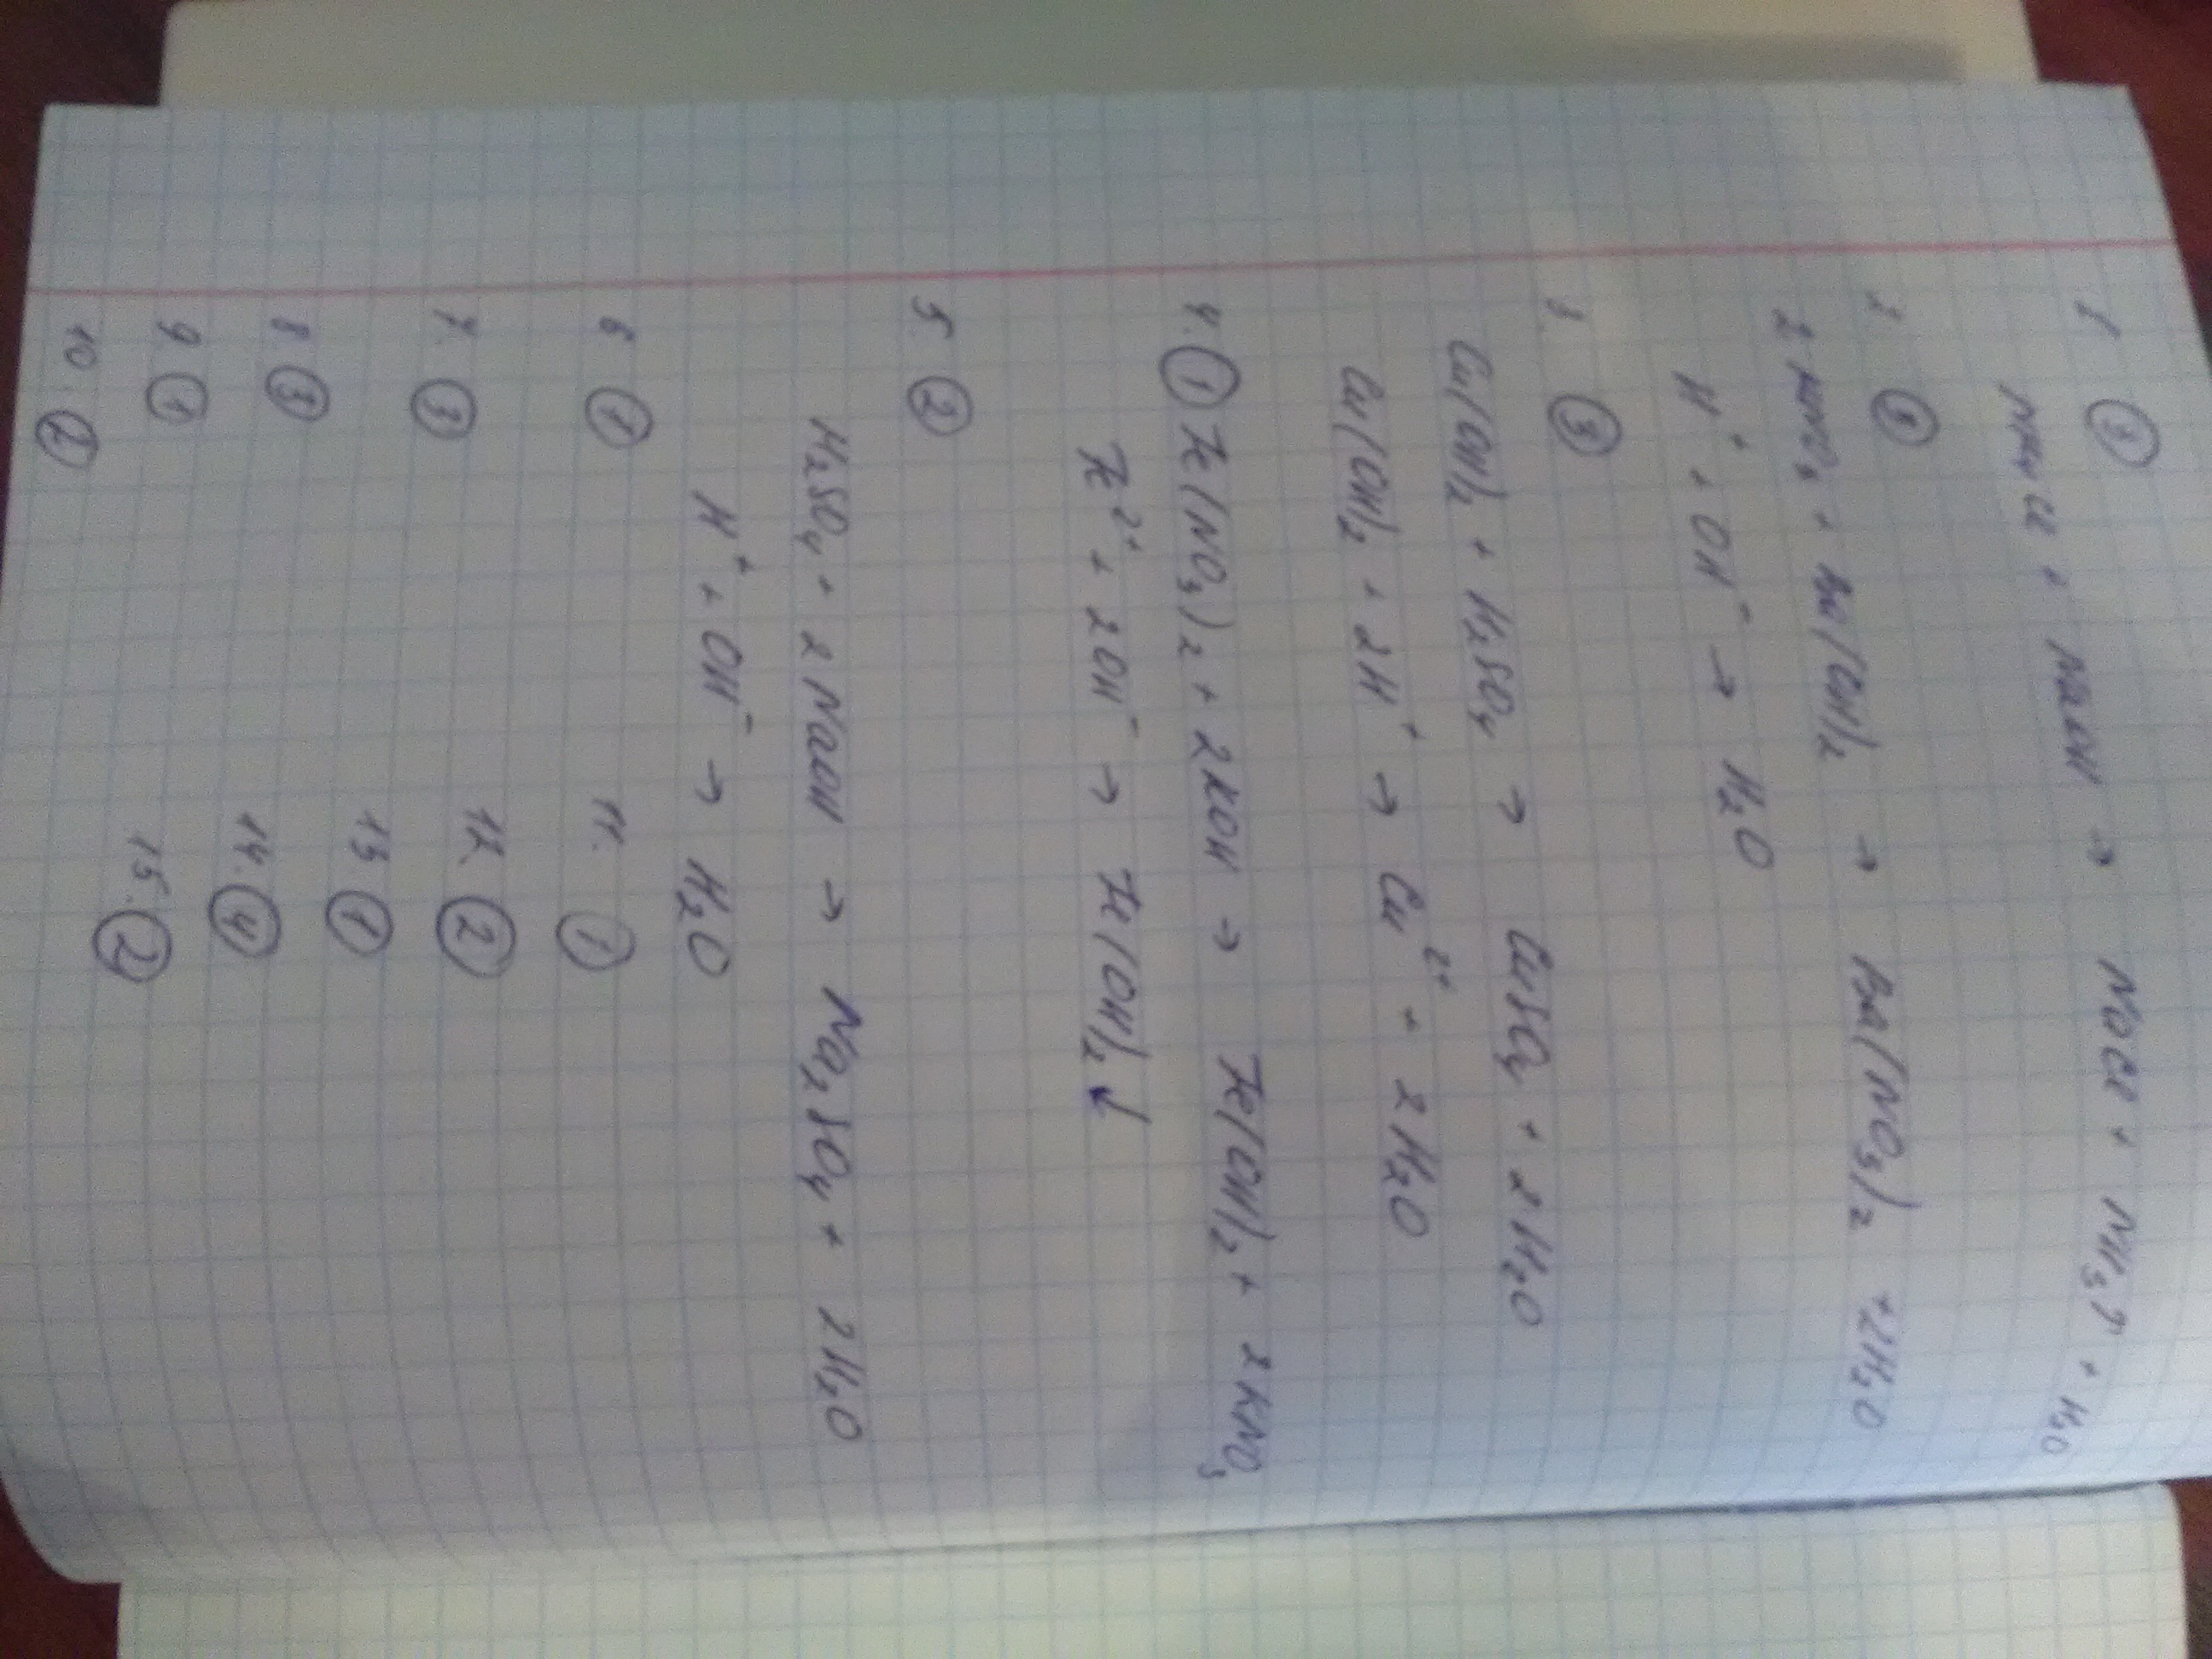 1. 
NH4Cl + NaOH → NaCl + NH3↑ + H2O
2.
2HNO3 + Ba(OH)2 → Ba(NO3)2 + 2H2O
H⁺ + OH⁻ → H2O
3. ③
Cu(OH)2 + H2SO4 → CuSO4 + 2H2O
Cu(OH)2 + 2H⁺ → Cu²⁺ + 2H2O
4. ① Fe(NO3)2 + 2KOH → Fe(OH)2 + 2KNO3
Fe²⁺ + 2OH⁻ → Fe(OH)2↓
5. ②
H2SO4 + 2NaOH → Na2SO4 + 2H2O
H⁺ + OH⁻ → H2O
6. ① 11. ①
7. ③ 12. ②
8. ③ 13. ①
9. ① 14. ④
10. ② 15. ②